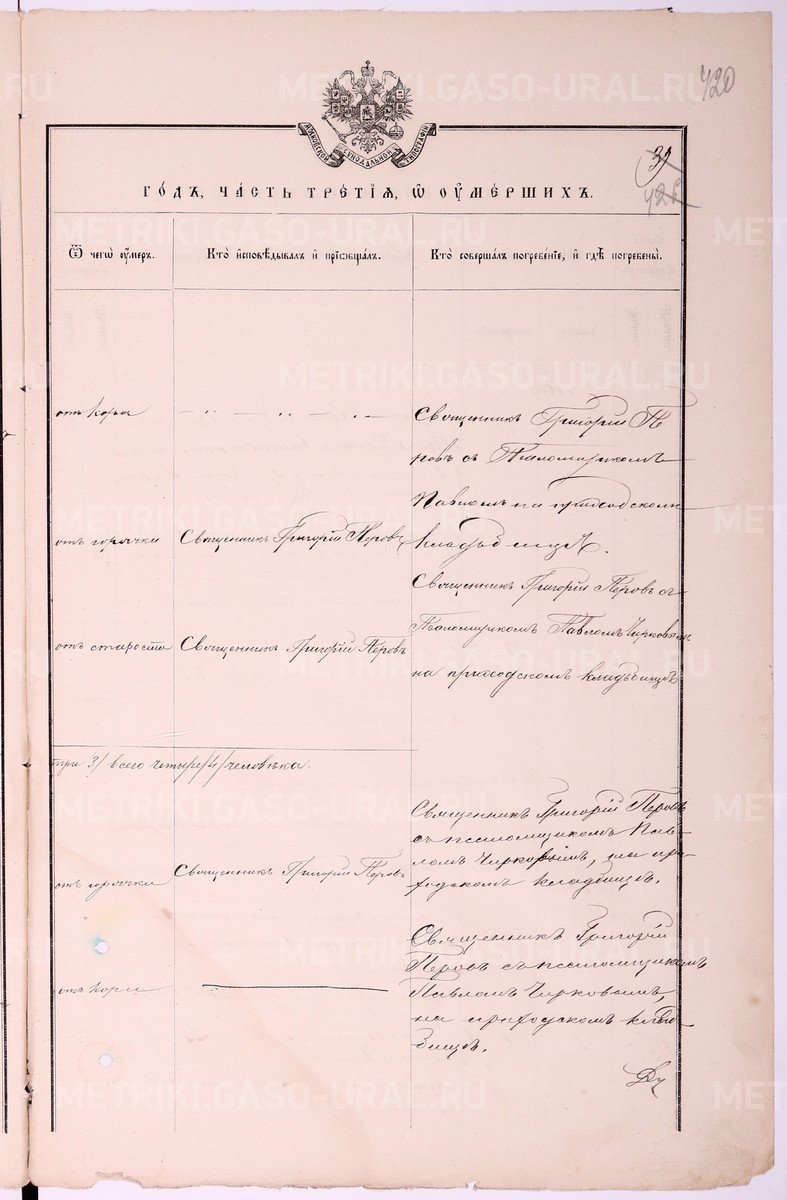 420
МОСКОВСКОЙ СѴНОДАЛЬНОЙ ТИПОГРАФІИ
31
428
ГО́ДЪ, ЧА́СТЬ ТРЕ́ТІѦ, Ѡ҆ ОУ҆МЕ́РШИХЪ.
Ѿ чегѡ̀ оу҆́меръ.
Кто̀ и҆сповѣ́дывалъ и҆ прїѡбща́лъ.
Кто̀ соверша́лъ погребе́нїе, и҆ гдѣ̀ погребены̀.
отъ кори
— ·· — ·· — ·· —
Священникъ Григорій Пе
ровъ съ Псаломщикомъ
Павломъ на приходскомъ
кладбищѣ.
отъ горячки
Священникъ Григорій Перовъ
Священникъ Григорій Перовъ съ
Псаломщикомъ Павломъ Чирковымъ
на приходскомъ кладбищѣ
отъ старости
Священникъ Григорій Перовъ
три 3/ всего четыре /4/ человѣка.
отъ горячки
Священникъ Григорій Перовъ
Священникъ Григорій Перовъ
съ псаломщикомъ Пав-
ломъ Чирковымъ, на при-
ходскомъ кладбищѣ.
отъ кори
Священникъ Григорій
Перовъ съ псаломщикомъ
Павломъ Чирковымъ,
на приходскомъ клад-
бищѣ.
METRIKI.GASO-URAL.RU